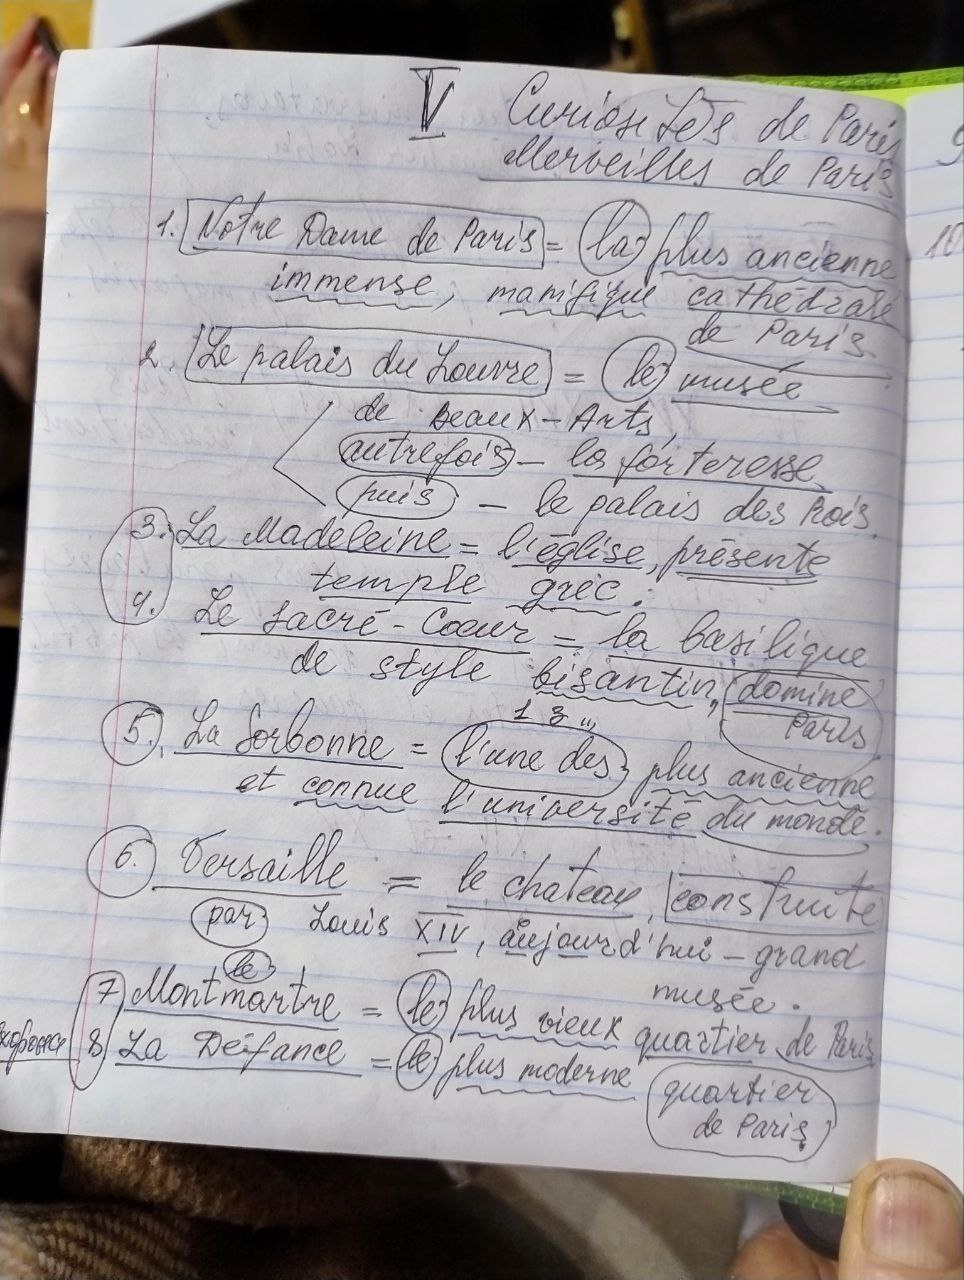 V Curiosités de Paris
Merveilles de Paris
1. Notre Dame de Paris = la plus ancienne
immense, manifique cathédrale
de Paris.
2. Le palais du Louvre = le musée
de Beaux-Arts,
autrefois - la forteresse
puis - le palais des Rois.
3. La Madeleine = l'église, présente
temple grec.
4. Le Sacré-Coeur = la basilique
de style bisantin, domine
Paris.
5. La Sorbonne = l'une des plus ancienne
et connue l'université du monde.
6. Versaille = le chateau, construite
par Louis XIV, aujourd'hui - grand
musée.
le
7. Montmartre = le plus vieux quartier de Paris
8. La Défance = le plus moderne quartier
de Paris.
9
10